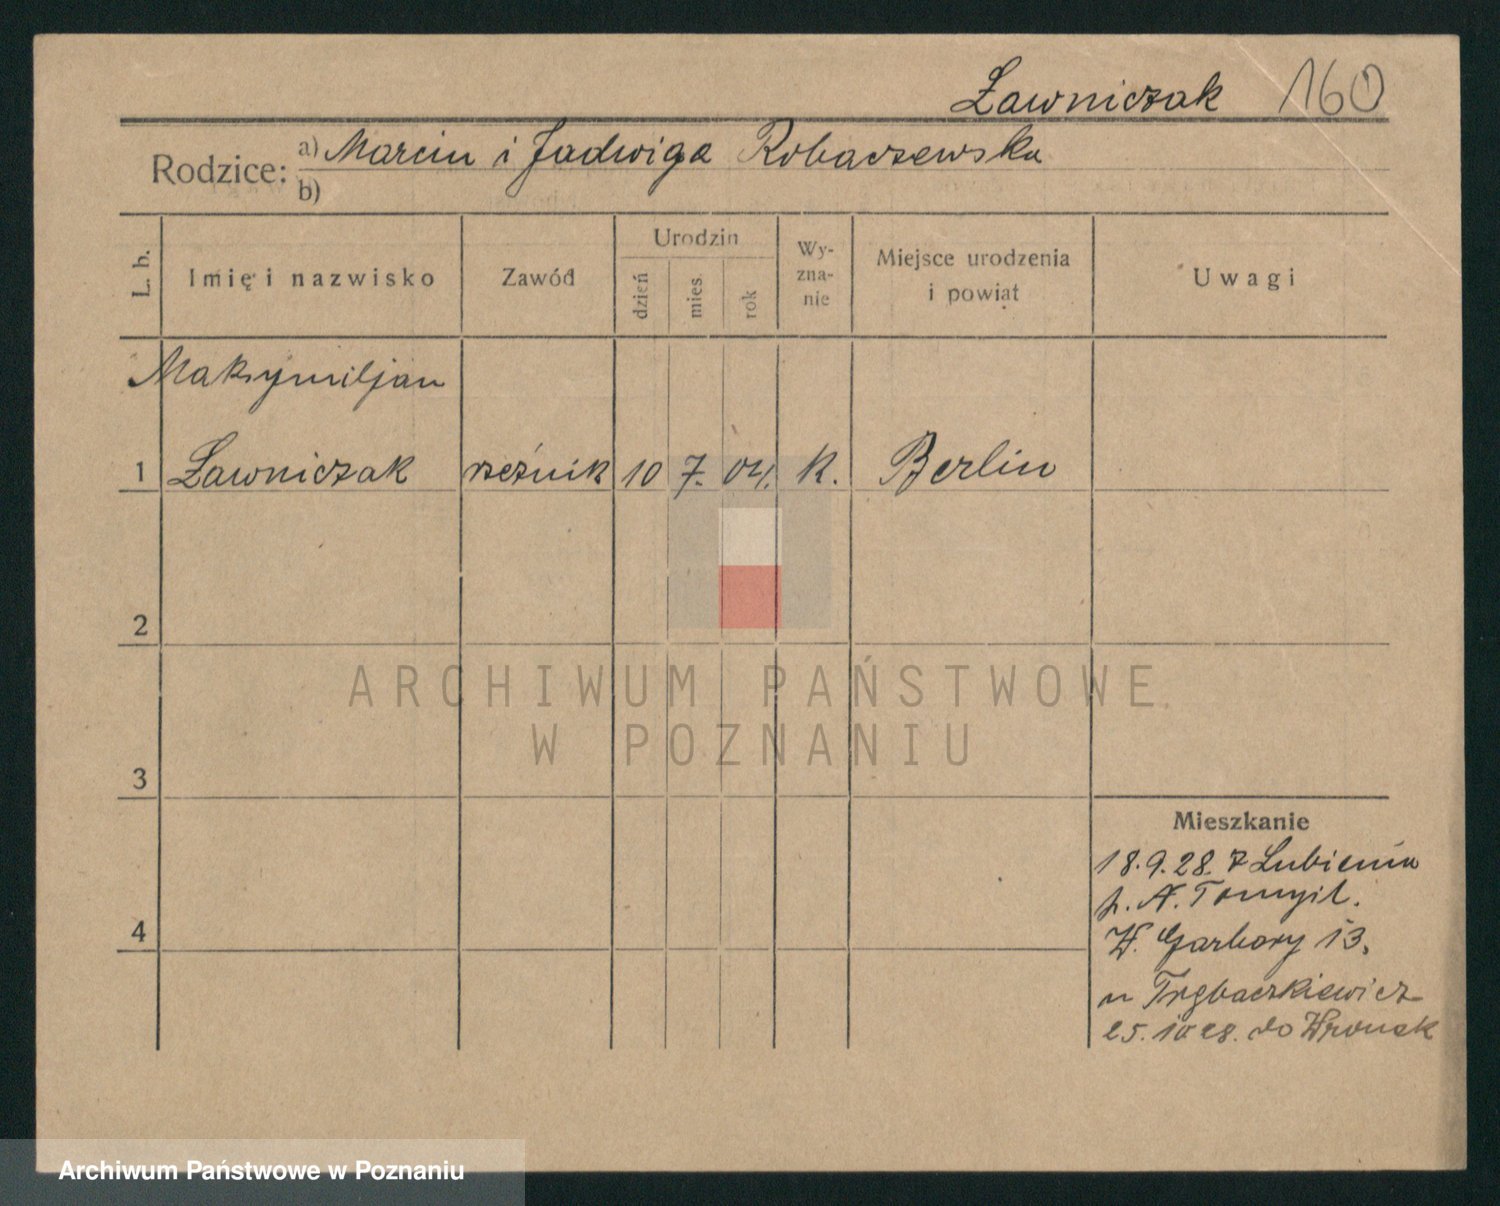 Ławniczak 160
Rodzice: a) Marcin i Jadwiga Robaczewska
b)
L. b.
Imię i nazwisko
Zawód
Urodzin
dzień
mies.
rok
Wy-
zna-
nie
Miejsce urodzenia
i powiat
Uwagi
Maksymiljan
1 Ławniczak rzeźnik 10 7. 04. K. Berlin
2
3
4
Mieszkanie
18.9.28. z Lubienia
p. N. Tomyśl.
W. Garbary 13,
u Trębaczkiewicz
25.10 28. do Wronek
ARCHIWUM PAŃSTWOWE
W POZNANIU
Archiwum Państwowe w Poznaniu